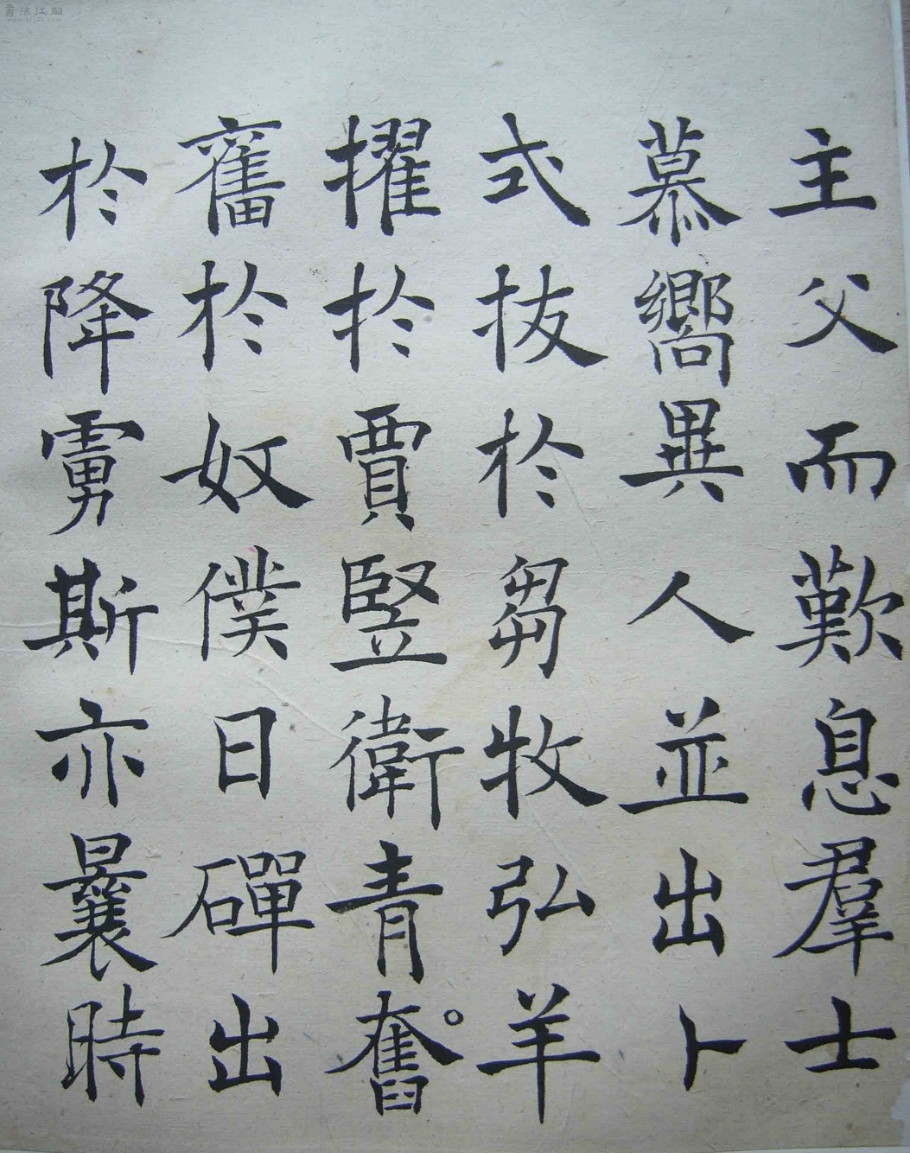 書法江湖
主父而歎息羣士
慕嚮異人並出卜
式拔於芻牧弘羊
擢於賈豎衛青奮
奮於奴僕日磾出
於降虜斯亦曩時